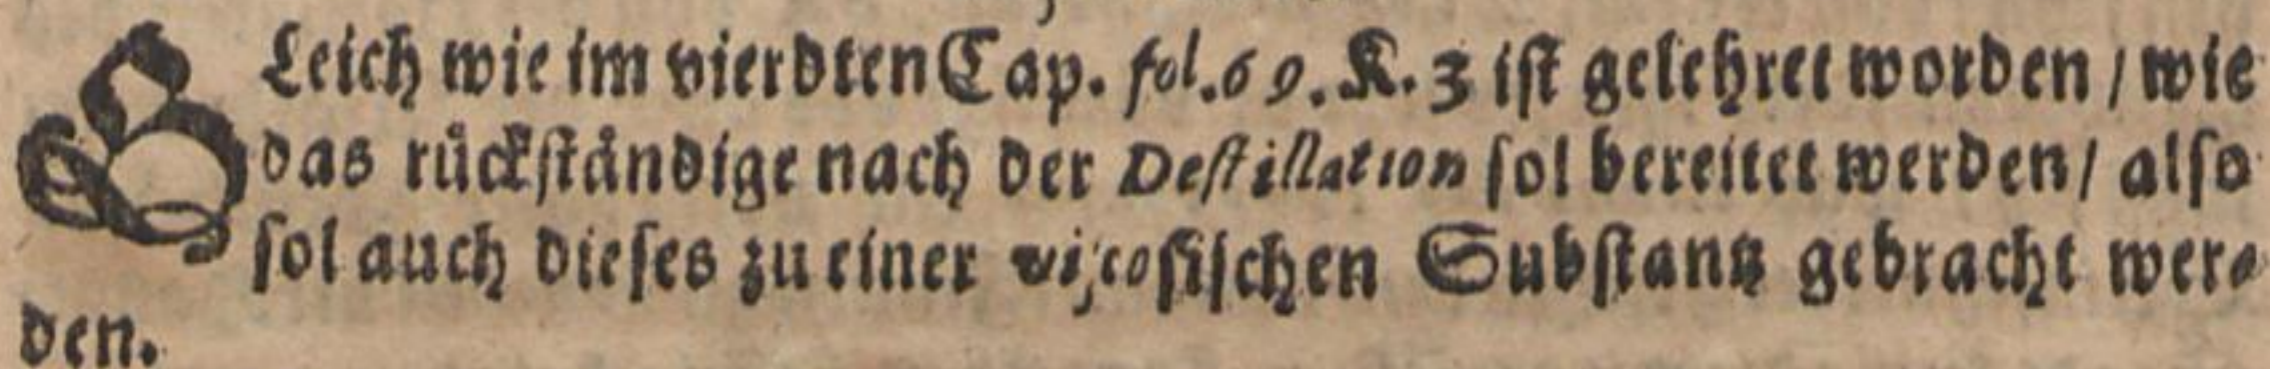 GLeich wie im vierdten Cap. fol. 69. K. 3 ist gelehret worden / wie
das rückständige nach der Destillation sol bereitet werden / also
sol auch dieses zu einer viscosischen Substantz gebracht wer-
den.